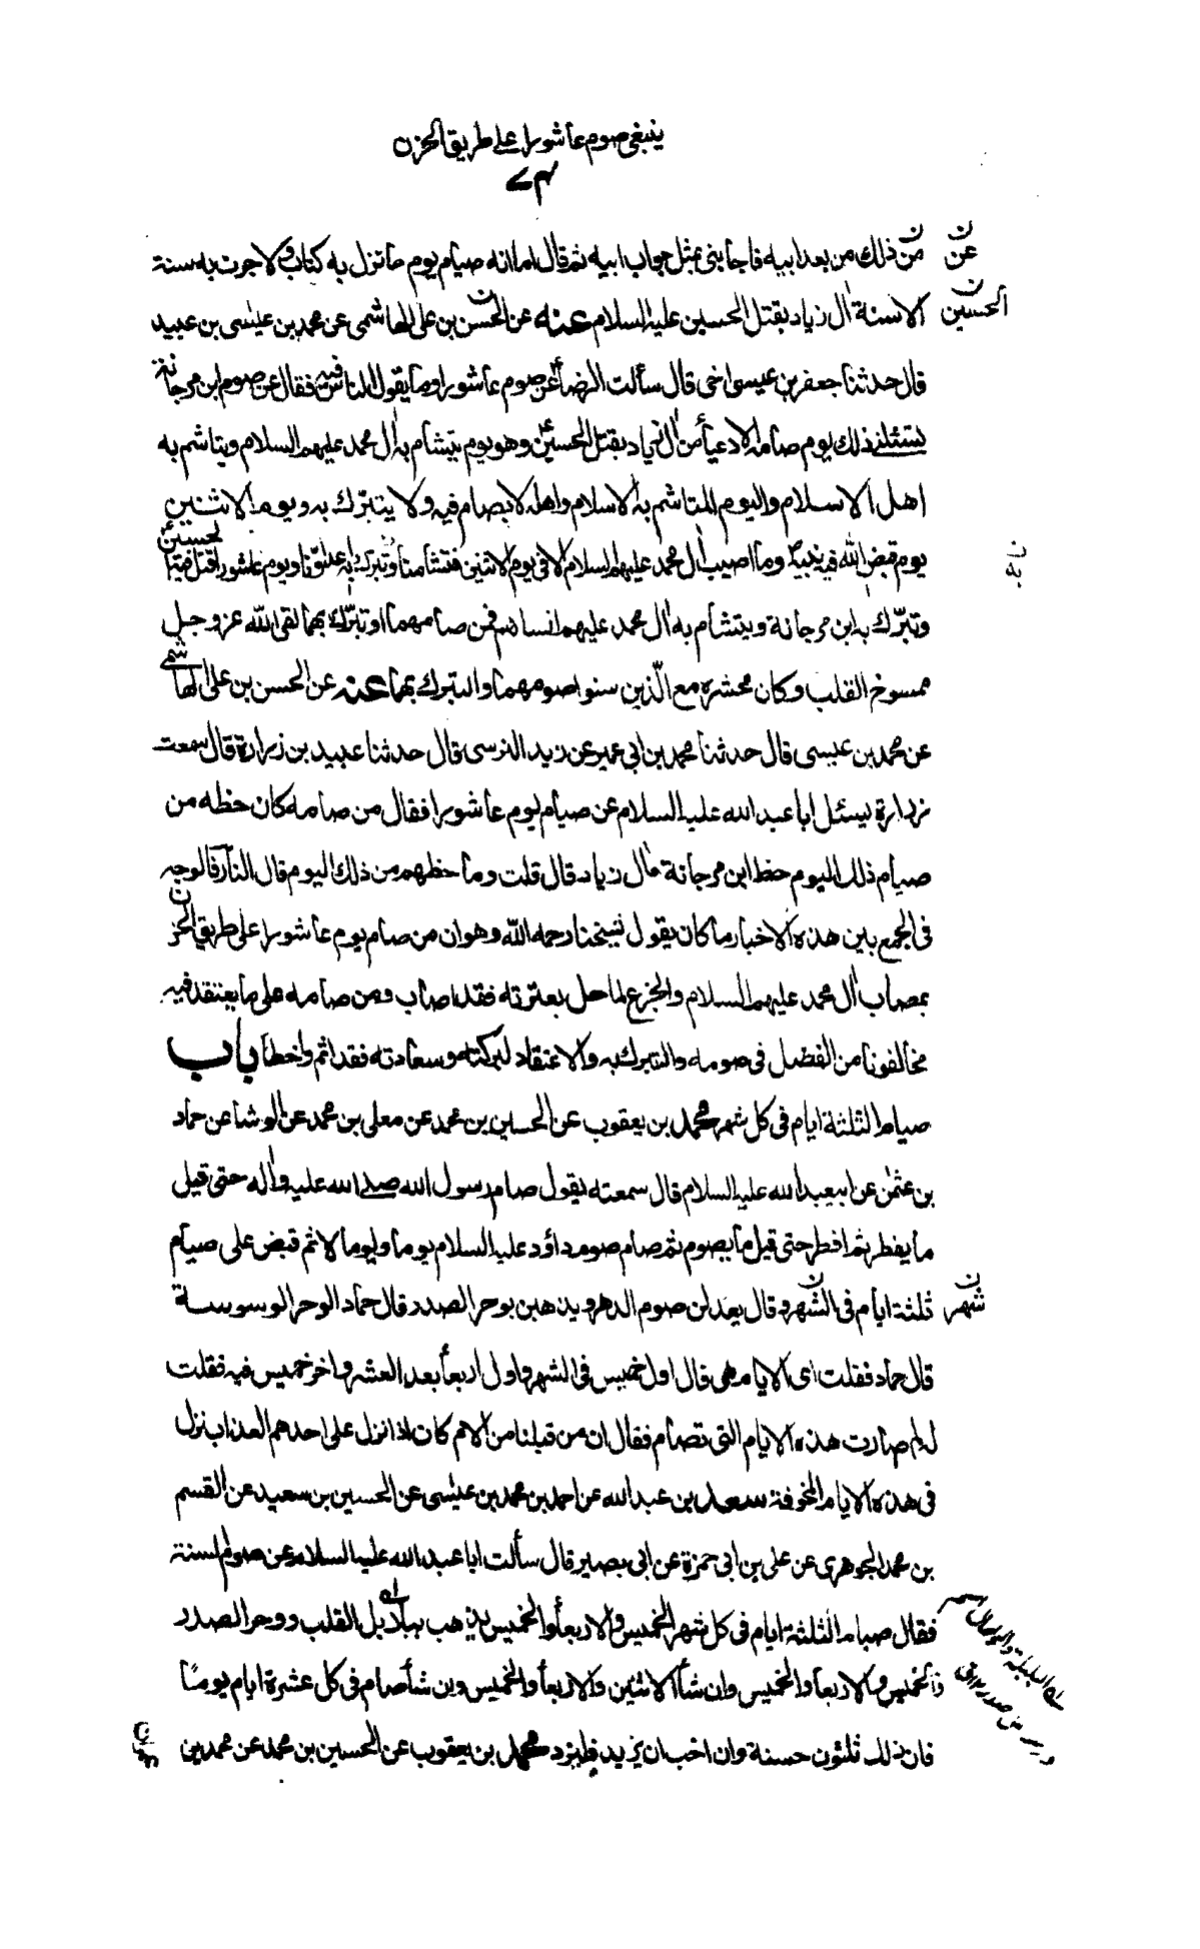 ينبغى صوم عاشورا على طريق الحزن
من ذلك من بعد ابيه فاجابنى بمثل جواب ابيه ثم قال اما انه صيام يوم ما نزل به كتاب ولا جرت به سنة
عن
الا سنة ال زياد بقتل الحسين عليه السلام عنه عن الحسن بن على الهاشمى عن محمد بن عيسى بن عبيد
الحسين
قال حدثنا جعفر بن عيسى اخى قال سألت الرضا ع عن صوم عاشورا وما يقول الناس فيه فقال عن صوم ابن مرجانة
تسئلنى ذلك يوم صامه الادعيأ من ال زياد بقتل الحسين ع وهو يوم يتشأم به ال محمد عليهم السلام ويتأشم به
اهل الاسلام واليوم المتأشم به الاسلام واهله لا يصام فيه ولا يتبرّك به ويوم الاثنين
يوم قبض الله فيه نبيه ص وما اصيب ال محمد عليهم السلام الا فى يوم الاثنين فتشأمنا وتبرك به عدوّنا ويوم عاشورا قتل فيه الحسين ع
به ن
وتبرّك به ابن مرجانة ويتشأم به ال محمد عليهم السلام فمن صامهما او تبرّك بهما لقى الله عز وجل
ممسوخ القلب وكان محشره مع الّذين سنوا صومهما والتبرك بهما عنه عن الحسن بن على الهاشمى
عن محمد بن عيسى قال حدثنا محمد بن ابى عمير عن زيد النرسى قال حدثنا عبيد بن زرارة قال سمعت
زرارة يسئل ابا عبد الله عليه السلام عن صيام يوم عاشورا فقال من صامه كان حظه من
صيام ذلك اليوم حظ ابن مرجانة وال زياد قال قلت وما حظهم من ذلك اليوم قال النار فالوجه
فى الجمع بين هذه الاخبار ما كان يقول شيخنا رحمه الله وهو ان من صام يوم عاشورا على طريق الحزن
بمصاب ال محمد عليهم السلام والجزع لما حل بعترته فقد اصاب ومن صامه على ما يعتقد فيه
مخالفونا من الفضل فى صومه والتبرك به والاعتقاد لبركته وسعادته فقد اثم واخطأ باب
صيام الثلثة ايام فى كل شهر محمد بن يعقوب عن الحسين بن محمد عن معلى بن محمد عن الوشا عن حماد
بن عثمن عن ابيعبد الله عليه السلام قال سمعته يقول صام رسول الله صلى الله عليه واله حتى قيل
ما يفطر ثم افطر حتى قيل ما يصوم ثم صام صوم داؤد عليه السلام يوما ويوما لا ثم قبض على صيام
ثلثة ايام فى الشهر وقال يعدلن صوم الدهر ويذهبن بوحر الصدر قال حماد الوحر الوسوسة
شهر ن
قال حماد فقلت اى الايام هى قال اول خميس فى الشهر واول اربعأ بعد العشر واخر خميس فيه فقلت
له لم صارت هذه الايام التى تصام فقال ان من قبلنا من الامم كان اذا نزل على احدهم العذاب نزل
فى هذه الايام المخوفة سعد بن عبد الله عن احمد بن محمد بن عيسى عن الحسين بن سعيد عن القسم
بن محمد الجوهرى عن على بن ابى حمزة عن ابى بصير قال سألت ابا عبد الله عليه السلام عن صوم السنة
فقال صيام الثلثة ايام فى كل شهر الخميس والاربعأ والخميس يذهب ببلابل القلب ووحر الصدر
الخميس والاربعأ والخميس وان شأ الاثنين والاربعأ والخميس ومن شأ صام فى كل عشرة ايام يومًا
فان ذلك ثلثون حسنة وان احب ان يزيد فليزد محمد بن يعقوب عن الحسين بن محمد عن محمد بن